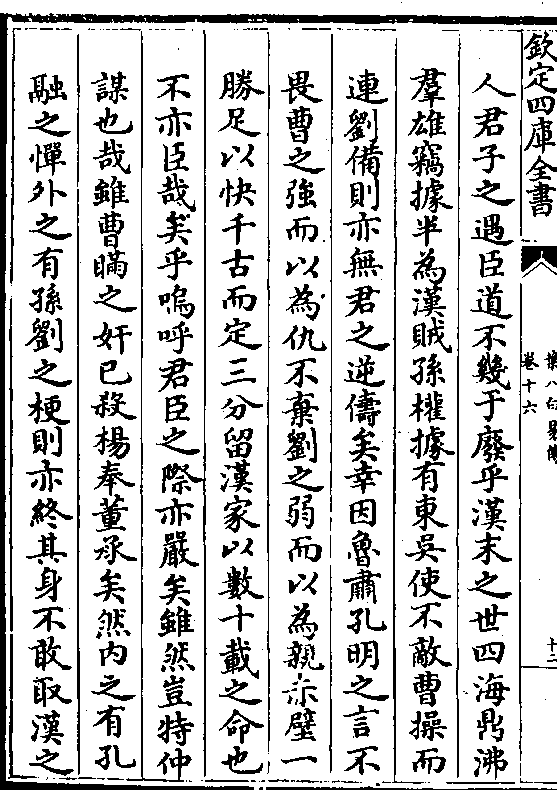 欽定四庫全書
卷十六
人君子之遇臣道不幾于廢乎漢末之世四海鼎沸
羣雄竊據半為漢賊孫權據有東吳使不敵曹操而
連劉備則亦無君之逆儔矣幸因魯肅孔明之言不
畏曹之強而以為仇不棄劉之弱而以為親赤壁一
勝足以快千古而定三分留漢家以數十載之命也
不亦臣哉矣乎嗚呼君臣之際亦嚴矣雖然豈特仲
謀也哉雖曹瞞之奸已殺楊奉董承矣然内之有孔
融之憚外之有孫劉之梗則亦終其身不敢取漢之